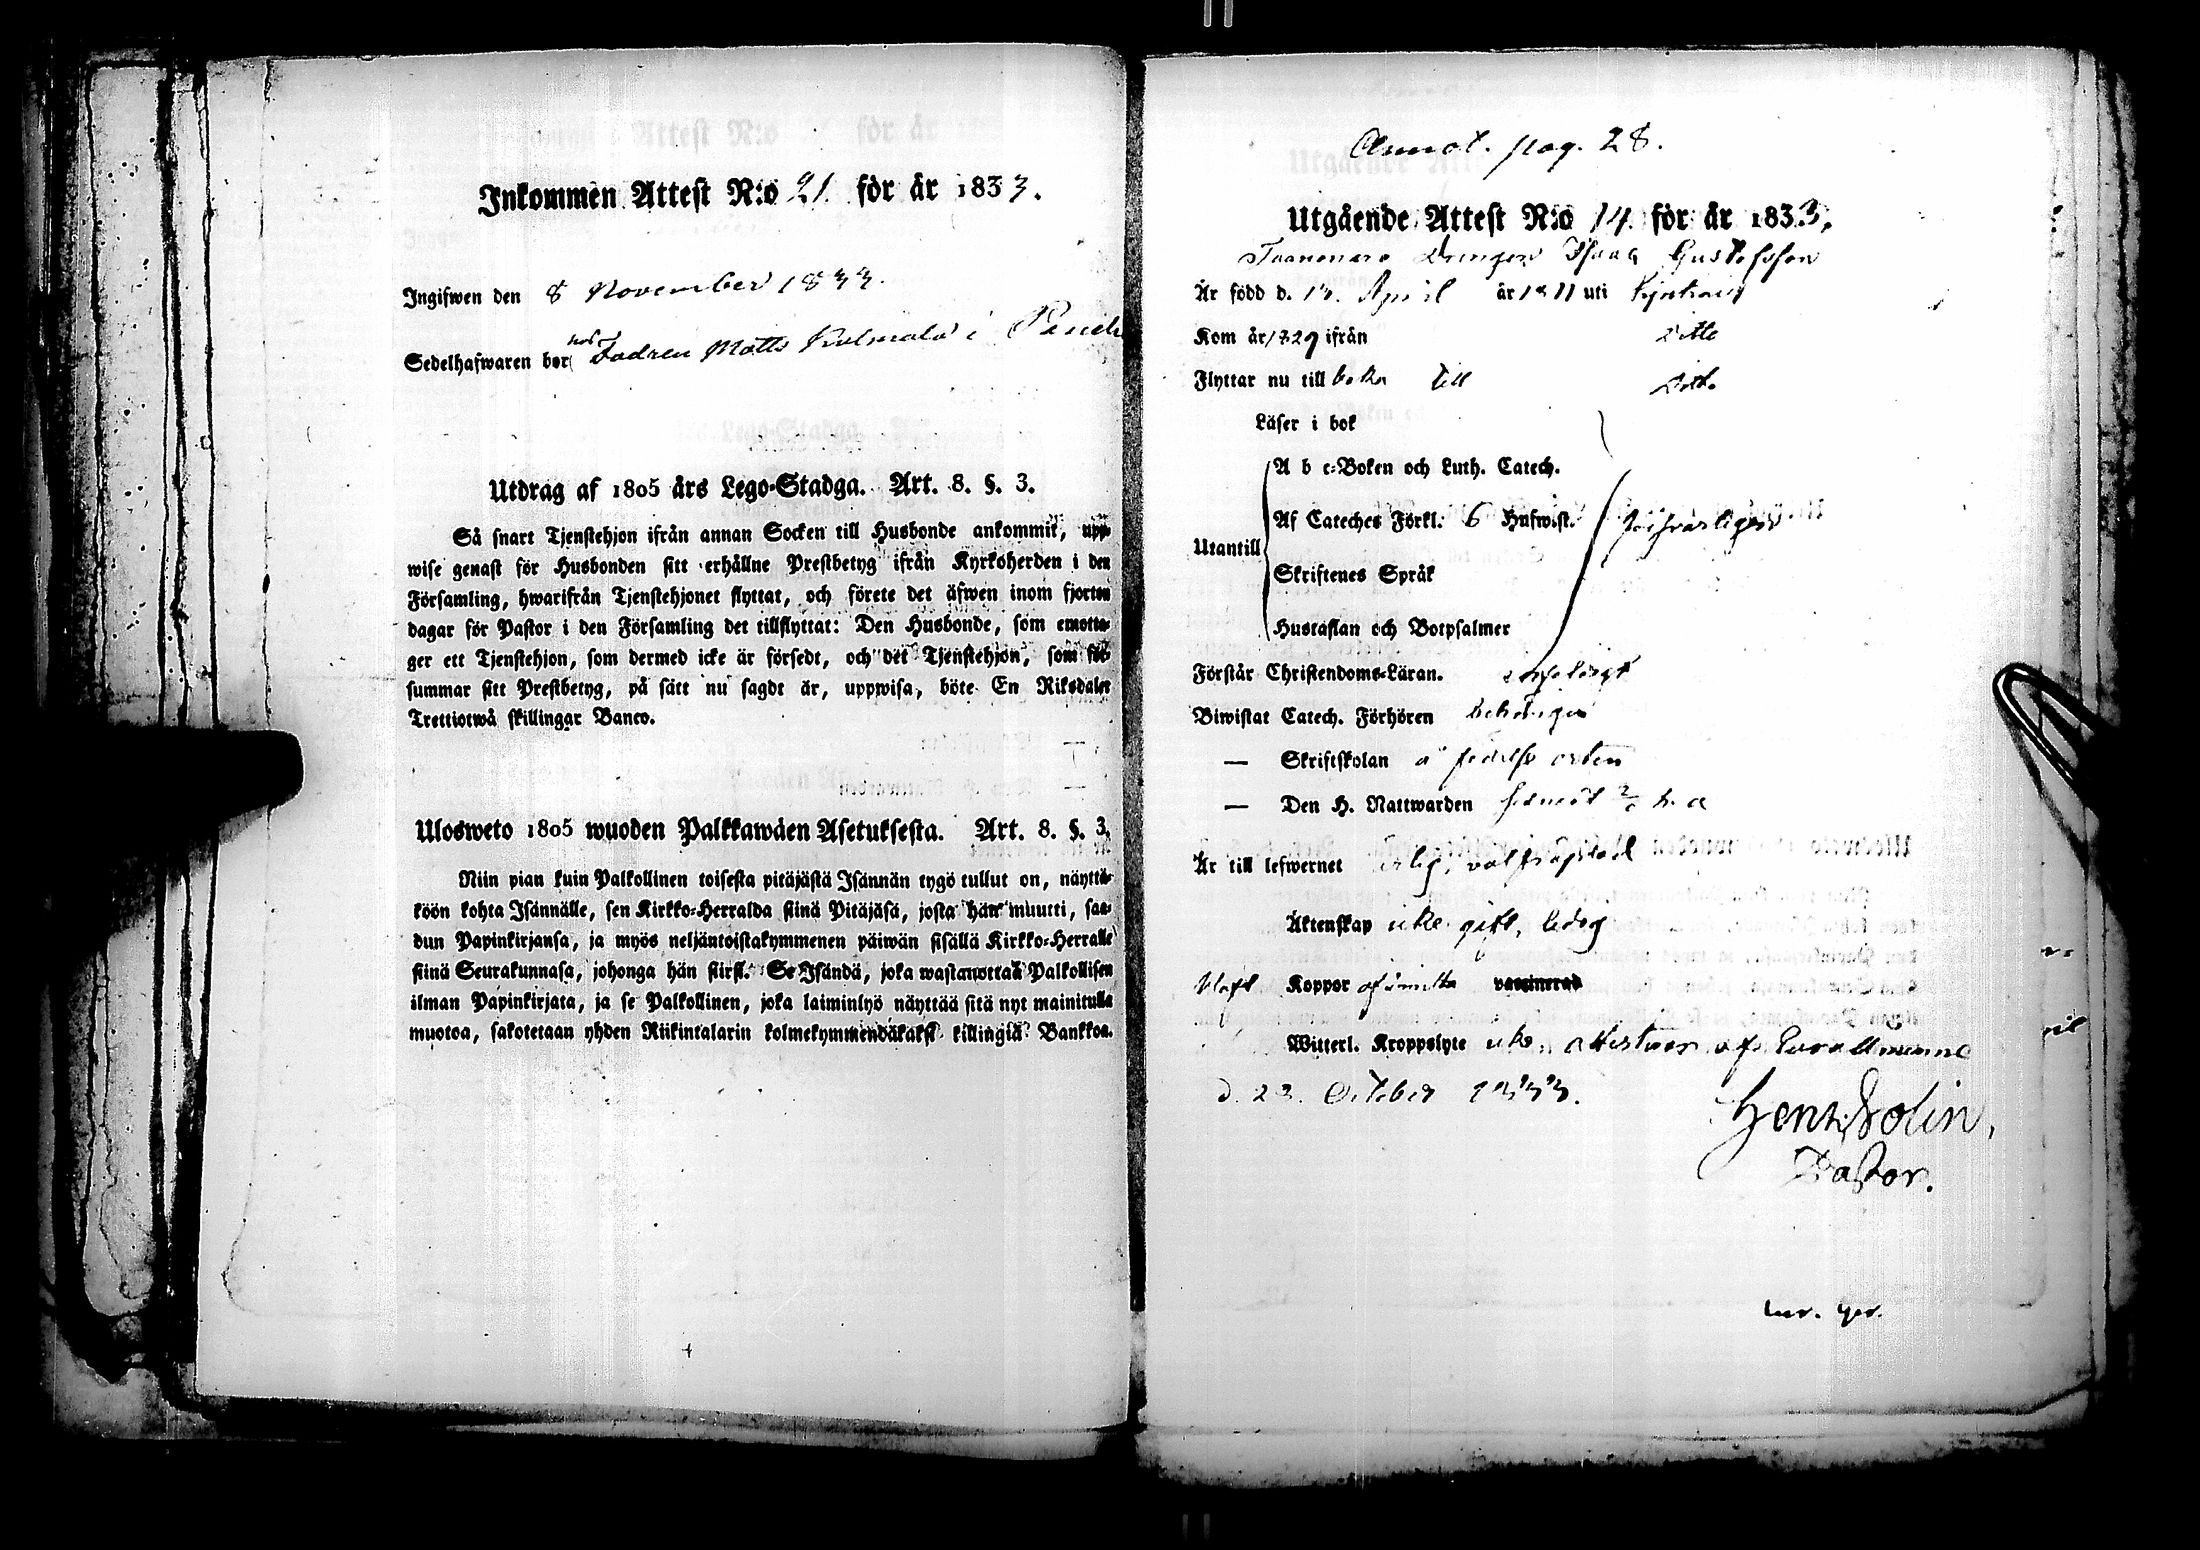 Inkommen Attest N:o 21. för år 1833.
Ingifwen den 8 November 1833.
Sedelhafwaren bor hos Fadren Matts i
Utdrag af 1805 års Lego-Stadga. Art. 8. §. 3.
Så snart Tjenstehjon ifrån annan Socken till Husbonde ankommit, upp-
wise genast för Husbonden sitt erhållne Prestbetyg ifrån Kyrkoherden i den
Församling, hwarifrån Tjenstehjonet flyttat, och förete det äfwen inom fjorton
dagar för Pastor i den Församling det tillflyttat: Den Husbonde, som emotta-
ger ett Tjenstehjon, som dermed icke är försedt, och det Tjenstehjon, som för-
summar sitt Prestbetyg, på sätt nu sagdt är, uppwisa, böte En Riksdaler
Trettiotwå skillingar Banco.
Ulosweto 1805 wuoden Palkkawäen Asetuksesta. Art. 8. §. 3.
Niin pian kuin Palkollinen toisesta pitäjästä Isännän tygö tullut on, näyttä-
köön kohta Isännälle, sen Kirkko-Herralda siinä Pitäjäsä, josta hän muutti, saa-
dun Papinkirjansa, ja myös neljäntoistakymmenen päiwän sisällä Kirkko-Herralle
siinä Seurakunnasa, johonga hän siirsi. Se Isändä, joka wastanottaa Palkollisen
ilman Papinkirjata, ja se Palkollinen, joka laiminlyö näyttää sitä nyt mainitulla
muotoa, sakotetaan yhden Riikintalarin kolmekymmendäkaksi killingiä Bankkoa.
Annot. pag. 28.
Utgående Attest N:o 14. för år 1833.
Drengen Isaac Gustafsson
Är född d. 13. April år 1811 uti
Kom år 1829 ifrån Ditto
Flyttar nu till baka till Ditto
Läser i bok
A b c-Boken och Luth. Catech.
Af Cateches Förkl. 6 Hufwist.
Utantill
Skriftenes Språk
Hustaflan och Botpsalmer
Förstår Christendoms-Läran.
Biwistat Catech. Förhören behörigen
— Skriftskolan å födelse orten
— Den H. Nattwarden senast
Är till lefwernet ärlig, välfräjdad
Äktenskap icke gift, ledig
Haft Koppor vaccinerad
Witterl. Kroppslyte icke, attesteras af
d. 23. October 1833.
Pastor.